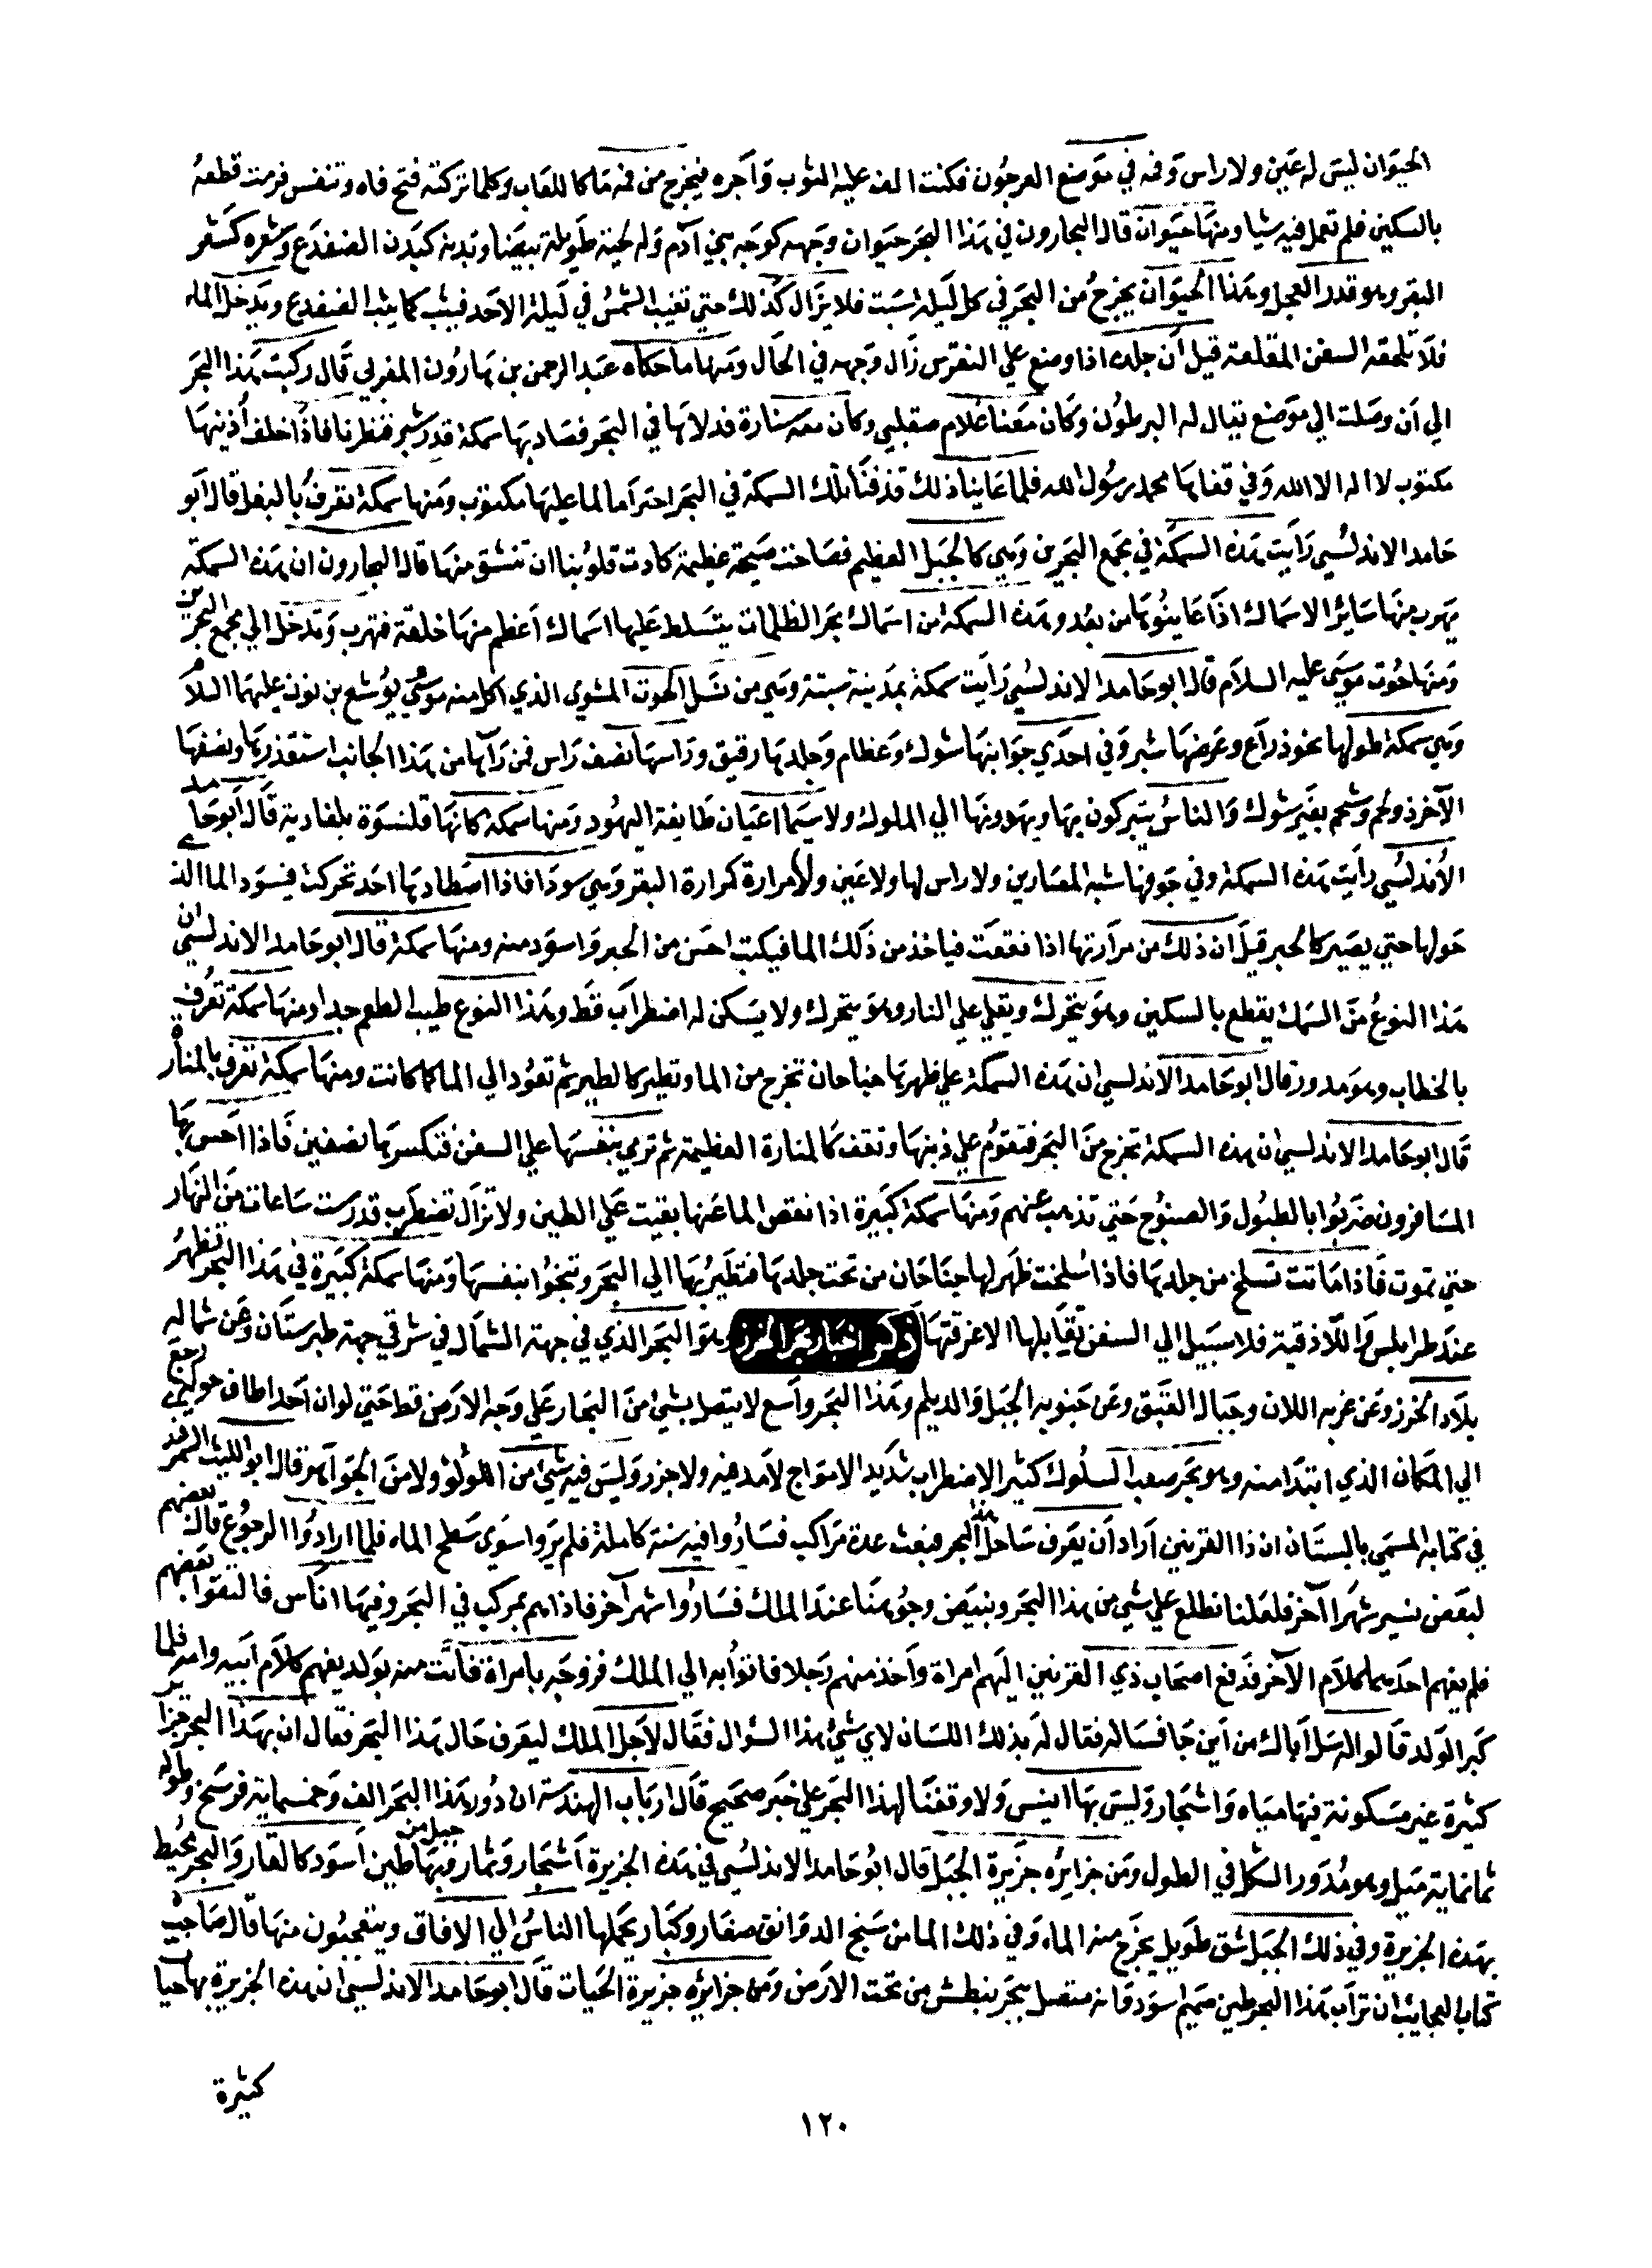 الحيوان ليس له عين ولا راس وفمه في موضع العرجون فكنت الف عليه الثوب وآجره فيخرج من فمه ماكا للعاب وكلما تركته فتح فاه وتنفس فرمت قطعه
بالسكين فلم تعمل فيه شيا ومنها حيوان قال البحارون في هذا البحر حيوان وجهه كوجه بني آدم وله لحية طويلة بيضا وبدنه كبدن الضفدع وشعره كشعر
البقر وهو قدر العجل وهذا الحيوان يخرج من البحر في كل ليلة سبت فلا يزال كذلك حتي تغيب الشمس في ليلة الاحد فيثب كما يثب الضفدع ويدخل الماء
فلا تلحقه السفن المقلعة قيل ان جلده اذا وضع علي النقرس زال وجعه في الحال ومنها ما حكاه عبد الرحمن بن هارون المغربي قال ركبت هذا البحر
الي ان وصلت الي موضع يقال له البرطون وكان معنا غلام صقلبي وكان معه سنارة فدلاها في البحر فصاد بها سمكة قدر شبر فنظرنا فاذا خلف اذنيها
مكتوب لا اله الا الله وفي قفاها محمد رسول الله فلما عاينا ذلك قذفنا تلك السمكة في البحر احتراما لما عليها مكتوب ومنها سمكة تعرف بالبغل قال ابو
حامد الاندلسي رايت هذه السمكة في مجمع البحرين وهي كالجبل العظيم فصاحت صيحة عظيمة كادت قلوبنا ان تنشق منها قال البحارون ان هذه السمكة
يهرب منها ساير الاسماك اذا عاينوها من بعد وهذه السمكة من اسماك بحر الظلمات يتسلط عليها اسماك اعظم منها خلقة فتهرب وتدخل الي مجمع البحرين
ومنها حوت موسي عليه السلام قال ابو حامد الاندلسي رايت سمكة بمدينة سبتة وهي من نسل الحوت المشوي الذي اكل منه موسي يوشع بن نون عليهما السلام
وهي سمكة طولها نحو ذراع وعرضها شبر وفي احدي جوانبها شوك وعظام وجلدها رقيق وراسها نصف راس فمن رآها من هذا الجانب استقذرها ونصفها
الآخر ذو لحم وشحم بغير شوك والناس يتبركون بها ويهدونها الي الملوك ولا سيما اعيان طايفة اليهود ومنها سمكة كانها قلنسوة بلغادية قال ابو حامد
الاندلسي رايت هذه السمكة وفي جوفها شبه المصارين ولا راس لها ولا عين ولها مرارة كمرارة البقر وهي سودا فاذا اصطادها احد تحركت فيسود الما الذي
حولها حتي يصير كالحبر قيل ان ذلك من مرارتها اذا نقعت فياخذ من ذلك الما فيكتب احسن من الحبر واسود منه ومنها سمكة قال ابو حامد الاندلسي ان
هذا النوع من السمك يقطع بالسكين وهو يتحرك ويقلي علي النار وهو يتحرك ولا يسكن له اضطراب قط وهذا النوع طيب الطعم جدا ومنها سمكة تعرف
بالخطاب وهو مدور قال ابو حامد الاندلسي ان هذه السمكة علي ظهرها جناحان تخرج من الما وتطير كالطير ثم تعود الي الما كما كانت ومنها سمكة تعرف بالمنارة
قال ابو حامد الاندلسي ان هذه السمكة تخرج من البحر فتقوم علي ذنبها وتقف كالمنارة العظيمة ثم ترمي بنفسها علي السفن فتكسرها نصفين فاذا احس بها
المسافرون ضربوا بالطبول والصنوج حتي تذهب عنهم ومنها سمكة كبيرة اذا نقص الما عنها بقيت علي الطين ولا تزال تضطرب قدر ست ساعات من النهار
حتي تموت فاذا ماتت تسلخ من جلدها فاذا سلخت ظهر لها جناحان من تحت جلدها فتطير بها الي البحر وتنجوا بنفسها ومنها سمكة كبيرة في هذا البحر تظهر
عند طرابلس واللاذقية فلا سبيل الي السفن تقابلها الا غرقتها ذكر اخبار بحر الخزر وهو البحر الذي في جهة الشمال في شرقي جهة طبرستان وعن شماله
بلاد الخزر وعن غربه اللان وجبال القبق وعن جنوبه الجبل والديلم وهذا البحر واسع لا يتصل بشئ من البحار علي وجه الارض قط حتي لو ان احدا طاف حوله رجع
الي المكان الذي ابتدا منه وهو بحر صعب السلوك كثير الاضطراب شديد الامواج لا مد فيه ولا جزر وليس فيه شئ من اللولؤ ولا من الجواهر قال ابو الليث السمرقندي
في كتابه المسمي بالبستان ان ذا القرنين اراد ان يعرف ساحل هذا البحر فبعث عدة مراكب فساروا فيه سنة كاملة فلم يروا سوي سطح الماء فلما ارادوا الرجوع قال بعضهم
لبعض نسير شهرا آخر فلعلنا نطلع علي شي من هذا البحر ونبيض وجوهنا عند الملك فساروا شهرا آخر فاذا هم بمركب في البحر وفيها اناس فالتقوا بعضهم
فلم يفهم احدهما كلام الآخر فدفع اصحاب ذي القرنين اليهم امراة واخذ منهم رجلا فاتوا به الي الملك فزوجه بامراة فاتت منه بولد يفهم كلام ابيه وامه فلما
كبر الولد قالوا له سل اباك من اين جا فساله فقال له بذلك اللسان لاي شئ هذا السؤال فقال لاجل الملك ليعرف حال هذا البحر فقال ان بهذا البحر جزاير
كثيرة غير مسكونة فيها مياه واشجار وليس بها انيس ولا وقفنا لهذا البحر علي خبر صحيح قال ارباب الهندسة ان دور هذا البحر الف وخمسماية فرسخ وطوله
ثمانماية ميل وهو مدور الشكل في الطول ومن جزائره جزيرة الجبل قال ابو حامد الاندلسي في هذه الجزيرة اشجار وثمار وبها جبل من طين اسود كالقار والبحر محيط
بهذه الجزيرة وفي ذلك الجبل شق طويل يخرج منه الماء وفي ذلك الما من سنج الدوانق صغار وكبار يحملها الناس الي الافاق ويتعجبون منها قال صاحب
كتاب العجايب ان تراب هذا البحر طين صميم اسود قانه متصل ببحر بنطش من تحت الارض ومن جزائره جزيرة الحيات قال ابو حامد الاندلسي ان هذه الجزيرة بها حيات
كثيرة
١٢٠